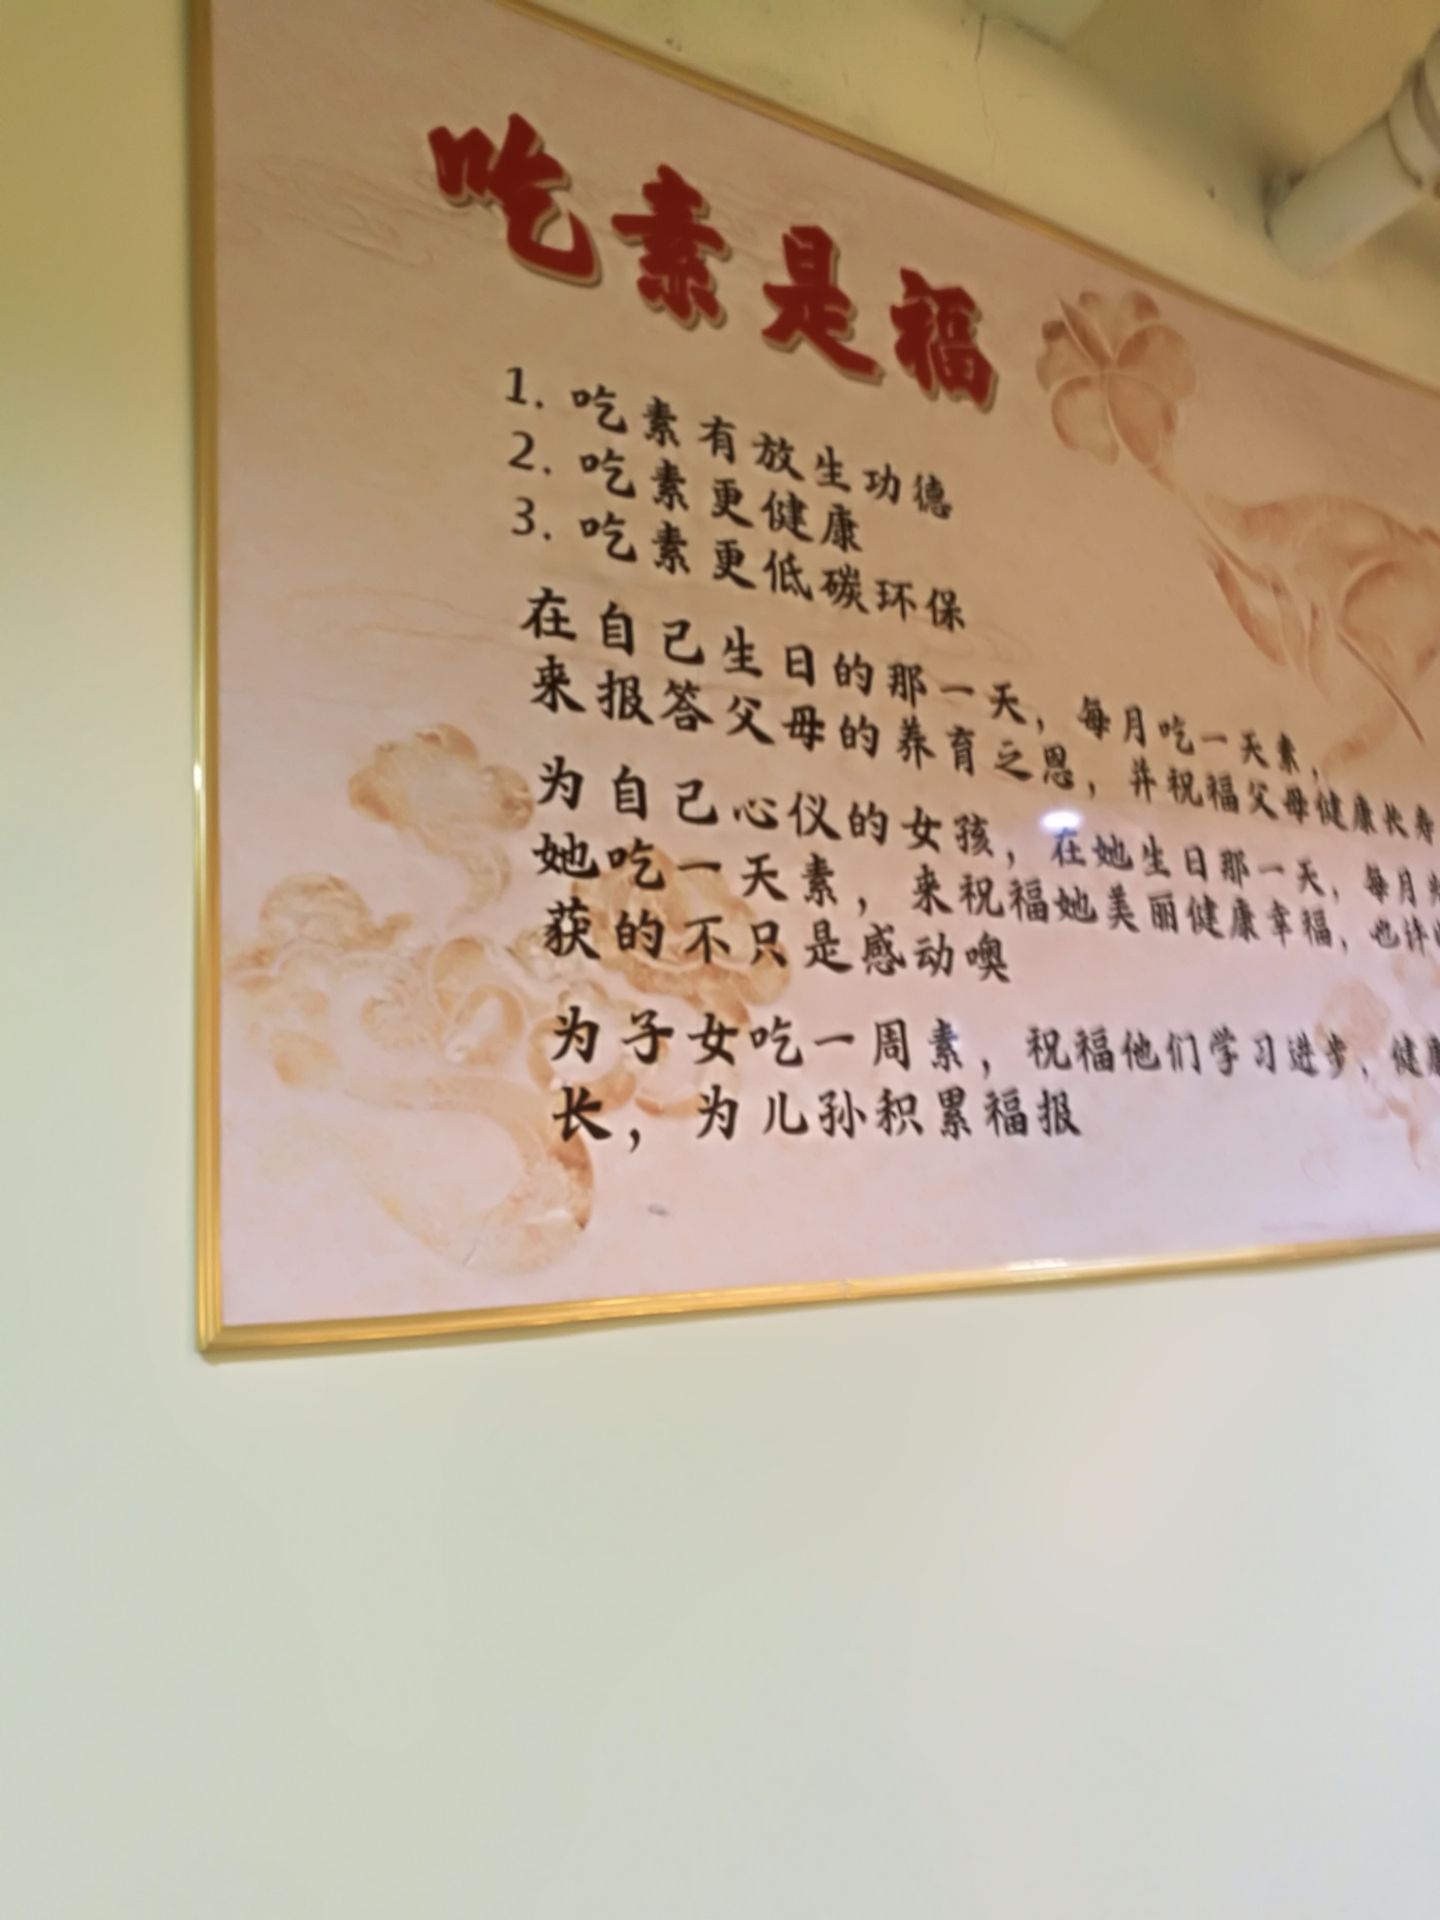 吃素是福
1. 吃素有放生功德
2. 吃素更健康
3. 吃素更低碳环保
在自己生日的那一天，每月吃一天素，
来报答父母的养育之恩，并祝福父母健康长寿
为自己心仪的女孩，在她生日那一天，每月
她吃一天素，来祝福她美丽健康幸福，也许
获的不只是感动噢
为子女吃一周素，祝福他们学习进步、健康
长，为儿孙积累福报